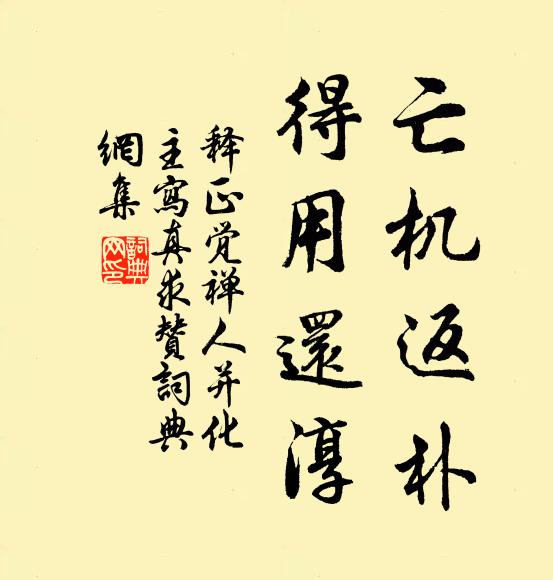 亡机返朴
得用還淳
释正觉禅人并化
主寫真求贊詞典
網集
詞典網印